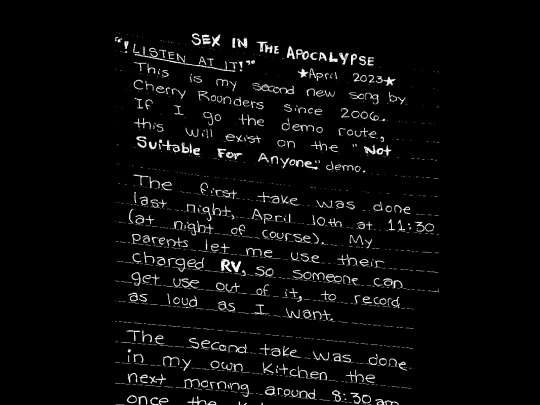 SEX IN THE APOCALYPSE
"!LISTEN AT IT!"
★April 2023★
This is my second new song by
Cherry Rounders since 2006.
If I go the demo route,
this will exist on the "Not
Suitable For Anyone" demo.
The first take was done
last night, April 10th at 11:30
(at night of course). My
parents let me use their
charged RV, so someone can
get use out of it, to record
as loud as I want.
The second take was done
in my own kitchen the
next morning around 8:30am
once the